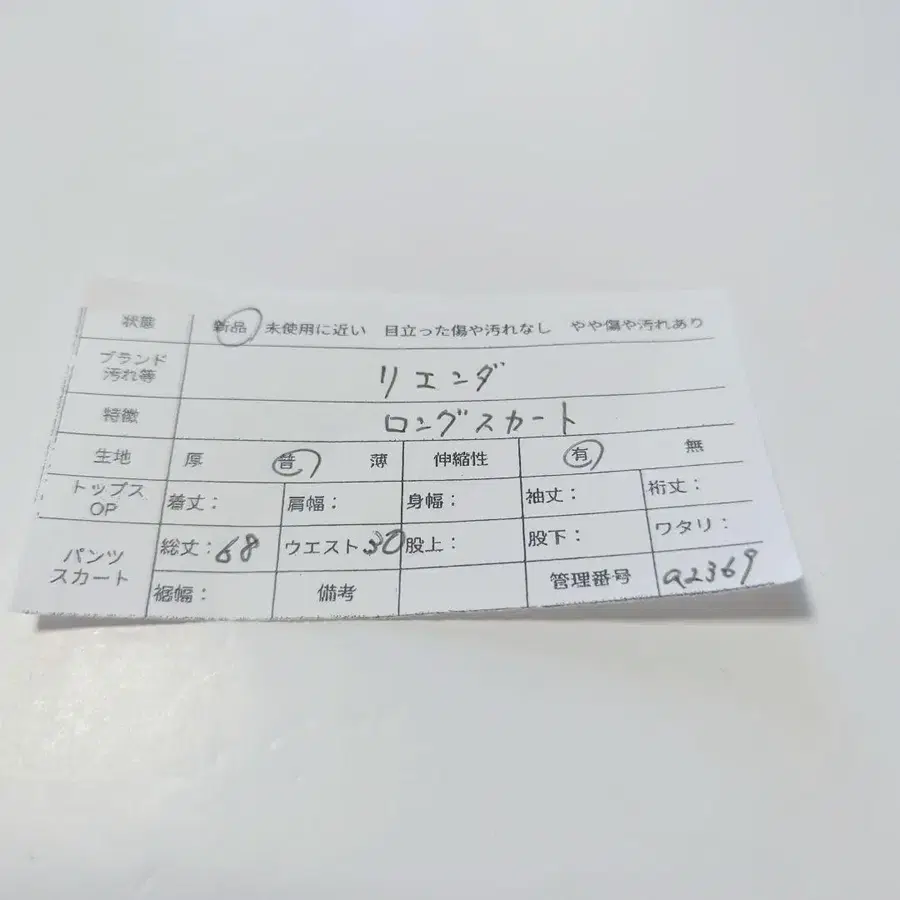 状態 新品 未使用に近い 目立った傷や汚れなし やや傷や汚れあり
ブランド
汚れ等 リエンダ
特徴 ロングスカート
生地 厚 普 薄 伸縮性 有 無
トップス
OP 着丈: 肩幅: 身幅: 袖丈: 裄丈:
パンツ
スカート 総丈:68 ウエスト30 股上: 股下: ワタリ:
裾幅: 備考 管理番号 a2369